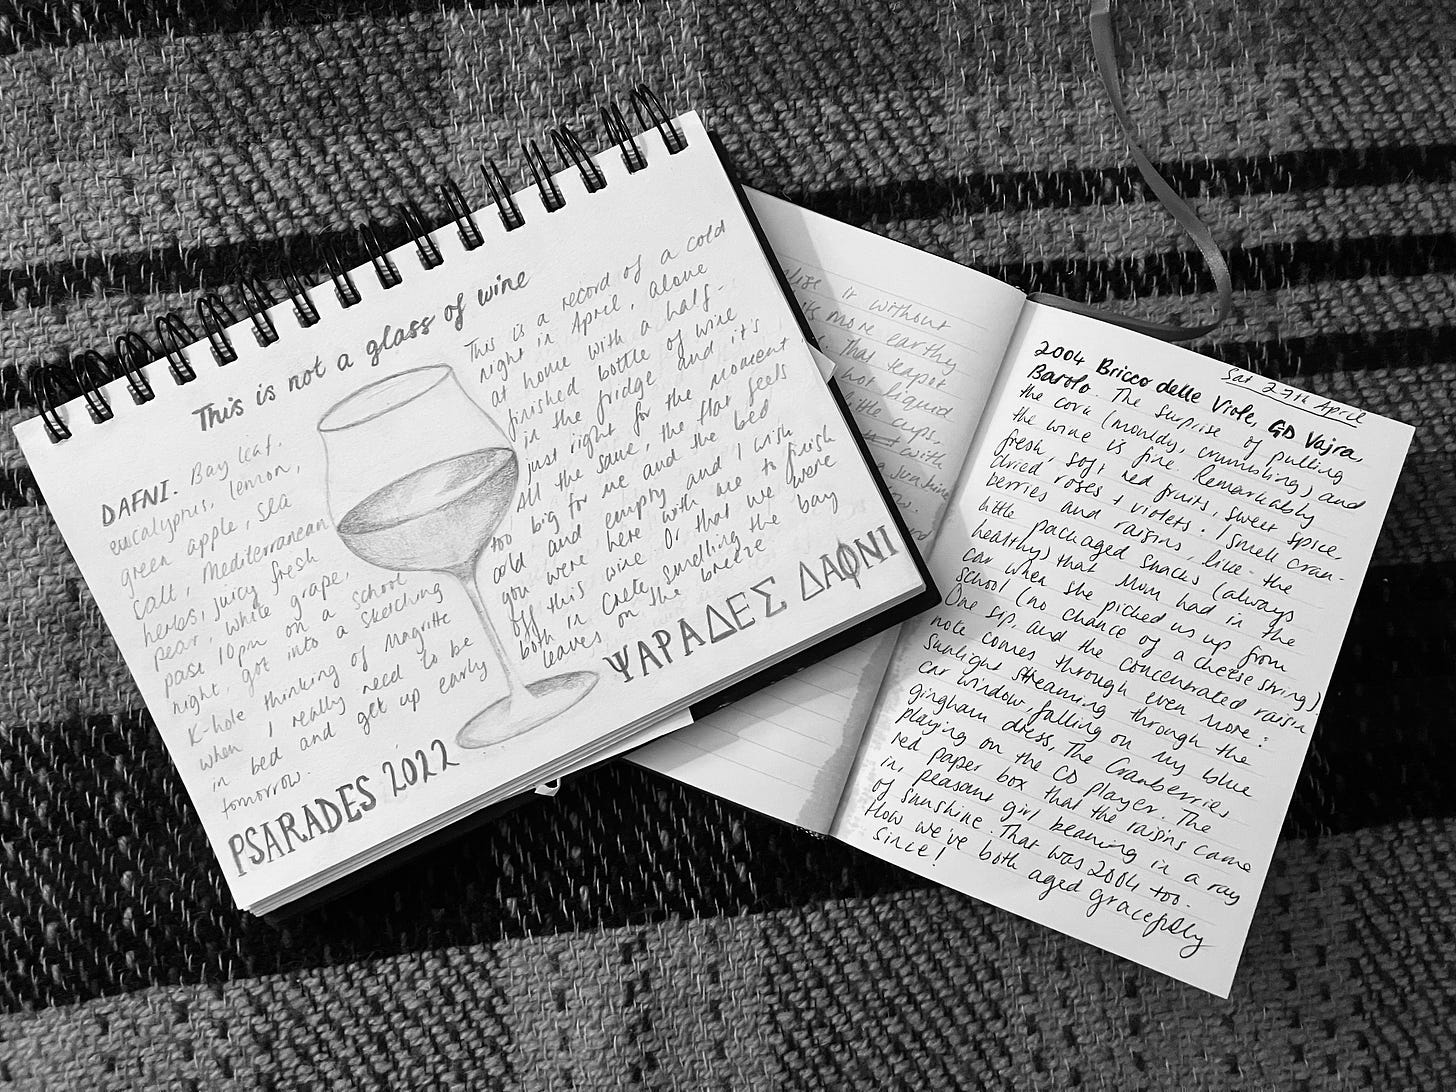 This is not a glass of wine
DAFNI. Bay leaf,
eucalyptus, lemon,
green apple, sea
salt, Mediterranean
herbs, juicy fresh
pear, white grape,
past 10pm on a school
night, got into a sketching
K-hole thinking of Magritte
when I really need to be
in bed and get up early
tomorrow.
PSARADES 2022
This is a record of a cold
night in April, alone
at home with a half-
finished bottle of wine
in the fridge and it's
just right for the moment
All the same, the flat feels
too big for me and the bed
cold and empty and I wish
you were here with me to finish
off this wine. Or that we were
both in Crete smelling the bay
leaves on the breeze
ΨΑΡΑΔΕΣ ΔΑΦΝΙ
it without
more earthy
That teapot
hot liquid
little cups,
with
sunshine
Sat 27th April
2004 Bricco delle Viole, GD Vajra,
Barolo. The surprise of pulling
the cork (mouldy, crumbling) and
the wine is fine. Remarkably
fresh, soft red fruits, sweet spice
dried roses + violets. I smell cran-
berries and raisins, like the
little packaged snacks (always
healthy) that Mum had in the
car when she picked us up from
school (no chance of a cheese string)
One sip, and the concentrated raisin
note comes through even more:
sunlight streaming through the
car window, falling on my blue
gingham dress, The Cranberries
playing on the CD player. The
red paper box that the raisins came
in, peasant girl beaming in a ray
of sunshine. That was 2004 too.
How we've both aged gracefully
since!